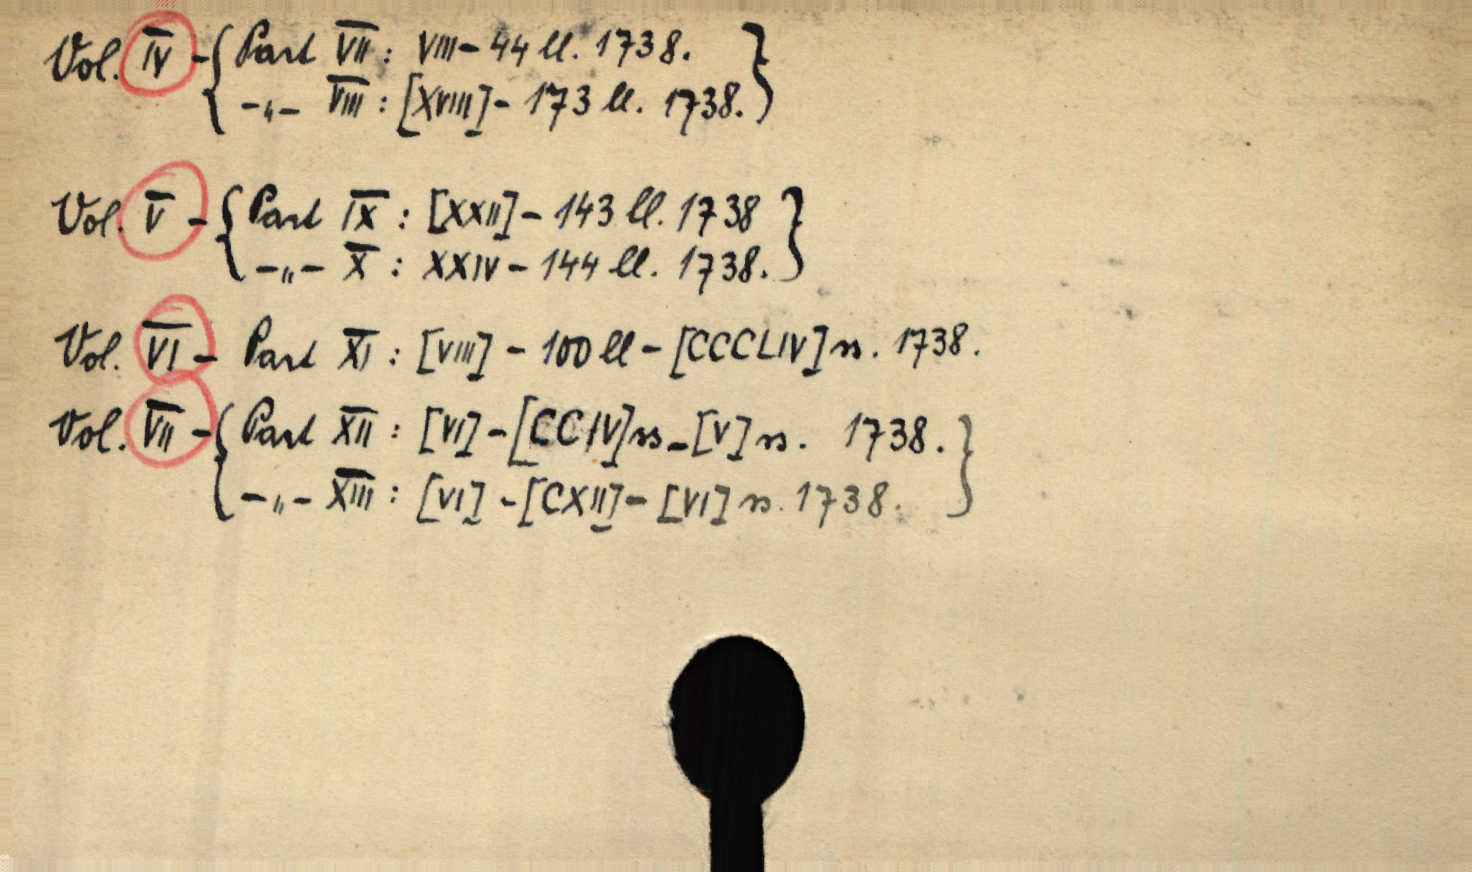 Vol. IV - { Part VII : VIII - 44 ll. 1738. }
-„- VIII : [XVIII] - 173 ll. 1738. }
Vol. V - { Part IX : [XXII] - 143 ll. 1738 }
-„- X : XXIV - 144 ll. 1738. }
Vol. VI - Part XI : [VIII] - 100 ll - [CCCLIV] n. 1738.
Vol. VII - { Part XII : [VI] - [CCIV] n - [V] n. 1738. }
-„- XIII : [VI] - [CXII] - [VI] n. 1738. }